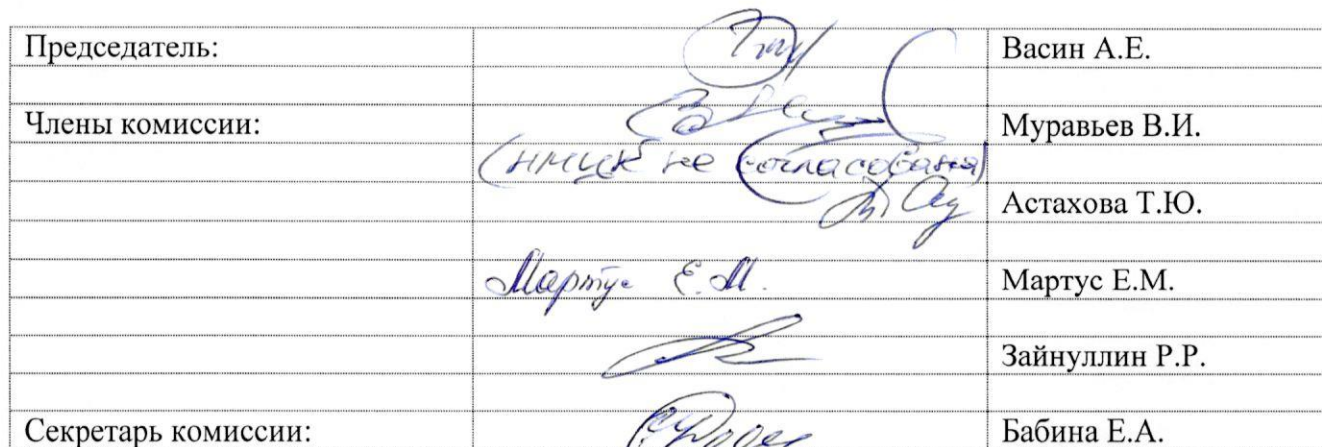 Председатель: Васин А.Е.
Члены комиссии: Муравьев В.И.
(НМЦК не согласована)
Астахова Т.Ю.
Мартус Е.М. Мартус Е.М.
Зайнуллин Р.Р.
Секретарь комиссии: Бабина Е.А.